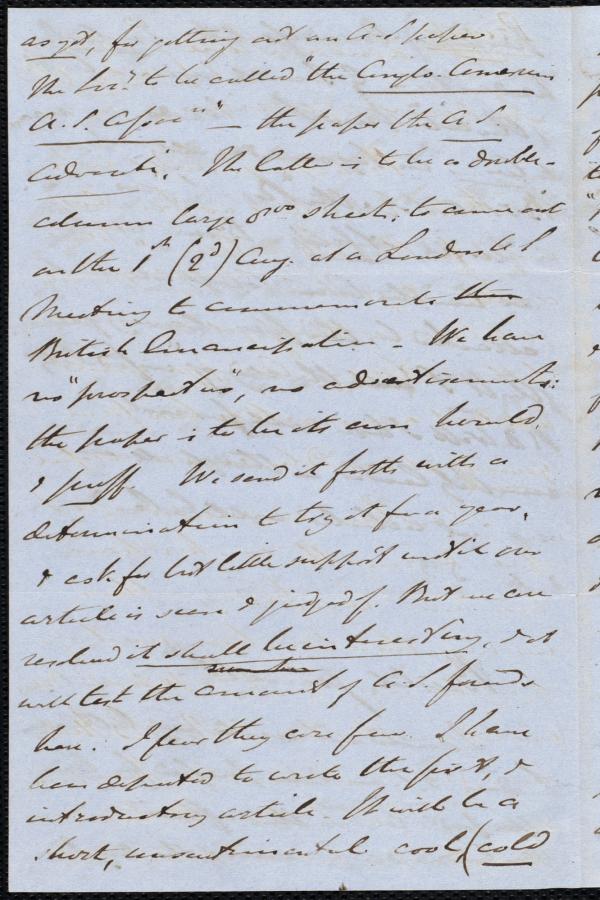 as yet, for getting out an A. S. paper
The Soc.y to be called "the Anglo. American
A. S. Assoc.n" — the paper the A. S.
Advocate. The latter is to be a double-
column large 8vo sheet, to come out
on the 1st (2d) Aug. at a London A. S
Meeting to commemorate the
British Emancipation – We have
no "prospectus", no advertisements:
the paper is to be its own herald,
& puff. We send it forth with a
determination to try it for a year,
& ask for but little support until our
article is seen & judged of. But we are
resolved it shall be interesting, & it
will test the amount of A. S. friends
here. I fear they are few. I have
been deputed to write the first, &
introductory article. It will be a
short, unsentimental cool, (cold